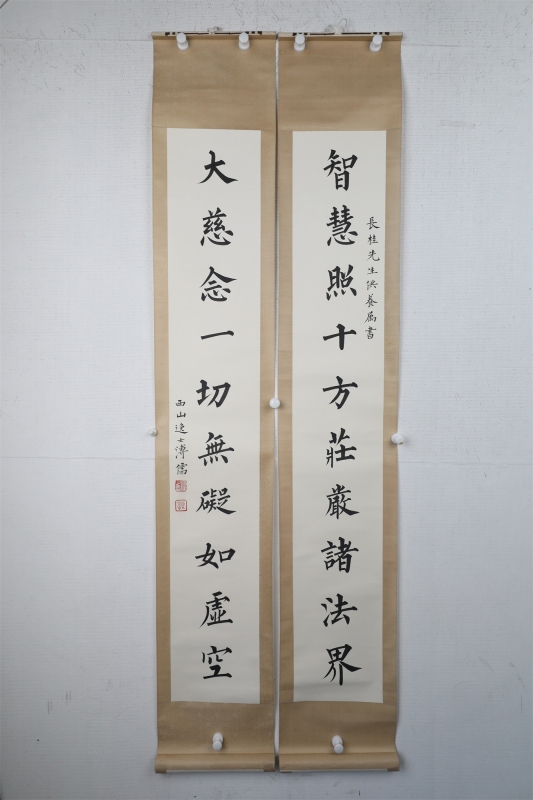 智慧照十方莊嚴諸法界
長桂先生供養屬書
大慈念一切無礙如虛空
西山逸士溥儒